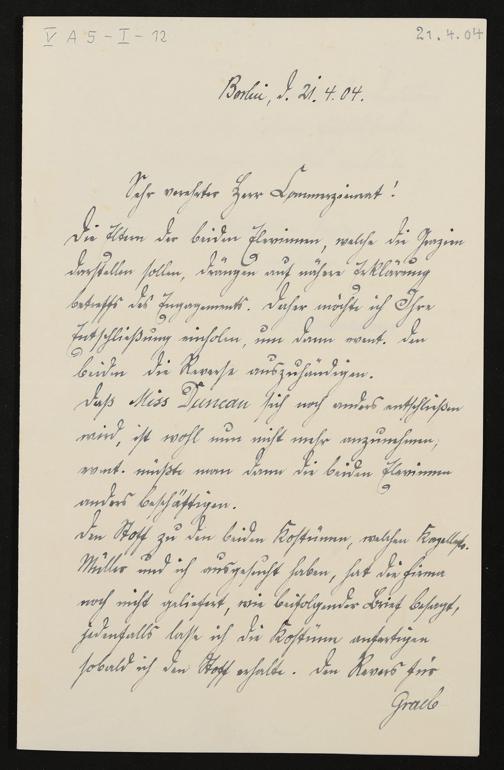 V A 5 - I - 12
21.4.04
Berlin, d. 21.4.04.
Sehr verehrter Herr Commerzienrat!
Die Eltern der beiden Elevinnen, welche die Grazien
darstellen sollen, drängen auf nähere Erklärung
betreffs des Engagements. Daher möchte ich Ihre
Entschließung einholen, um dann event. den
beiden die Reverse auszuhändigen.
Daß Miss Duncan sich noch anders entschließen
wird, ist wohl nun nicht mehr anzunehmen;
event. müßte man dann die beiden Elevinnen
anders beschäftigen.
Den Stoff zu den beiden Kostümen, welchen Kapellm.
Müller und ich ausgesucht haben, hat die Firma
noch nicht geliefert, wie beifolgender Brief besagt,
jedenfalls lasse ich die Kostüme anfertigen
sobald ich den Stoff erhalte. Den Revers für
Graeb